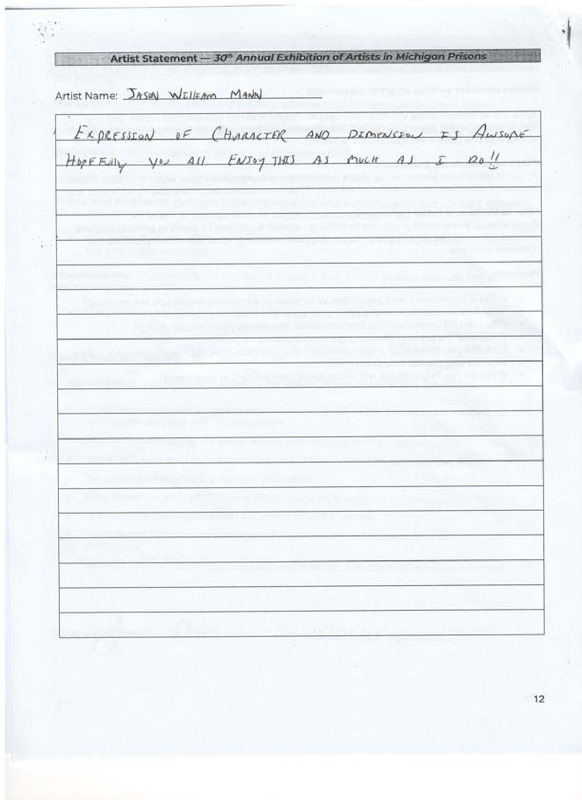 Artist Statement — 30th Annual Exhibition of Artists in Michigan Prisons
Artist Name: JASON WILLIAM MANN
EXPRESSION OF CHARACTER AND DIMENSION IS AWSOME
HOPEFULLY YOU ALL ENJOY THIS AS MUCH AS I DO!!
12